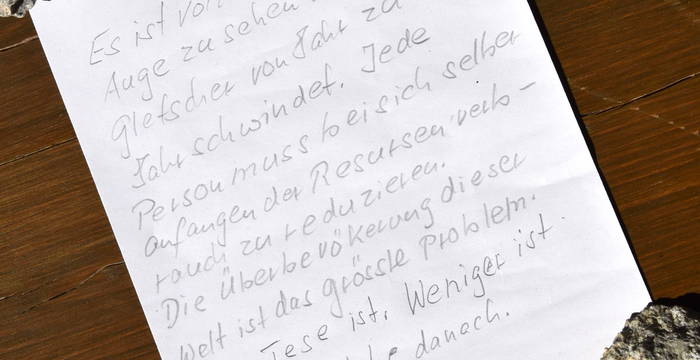 Es ist von
Auge zu sehen
Gletscher von Jahr zu
Jahr schwindet. Jede
Person muss bei sich selber
anfangen der Resursen verb-
rauch zu reduzieren.
Die Überbevökerung dieser
Welt ist das grösste Problem.
Tese ist. Weniger ist
danach.